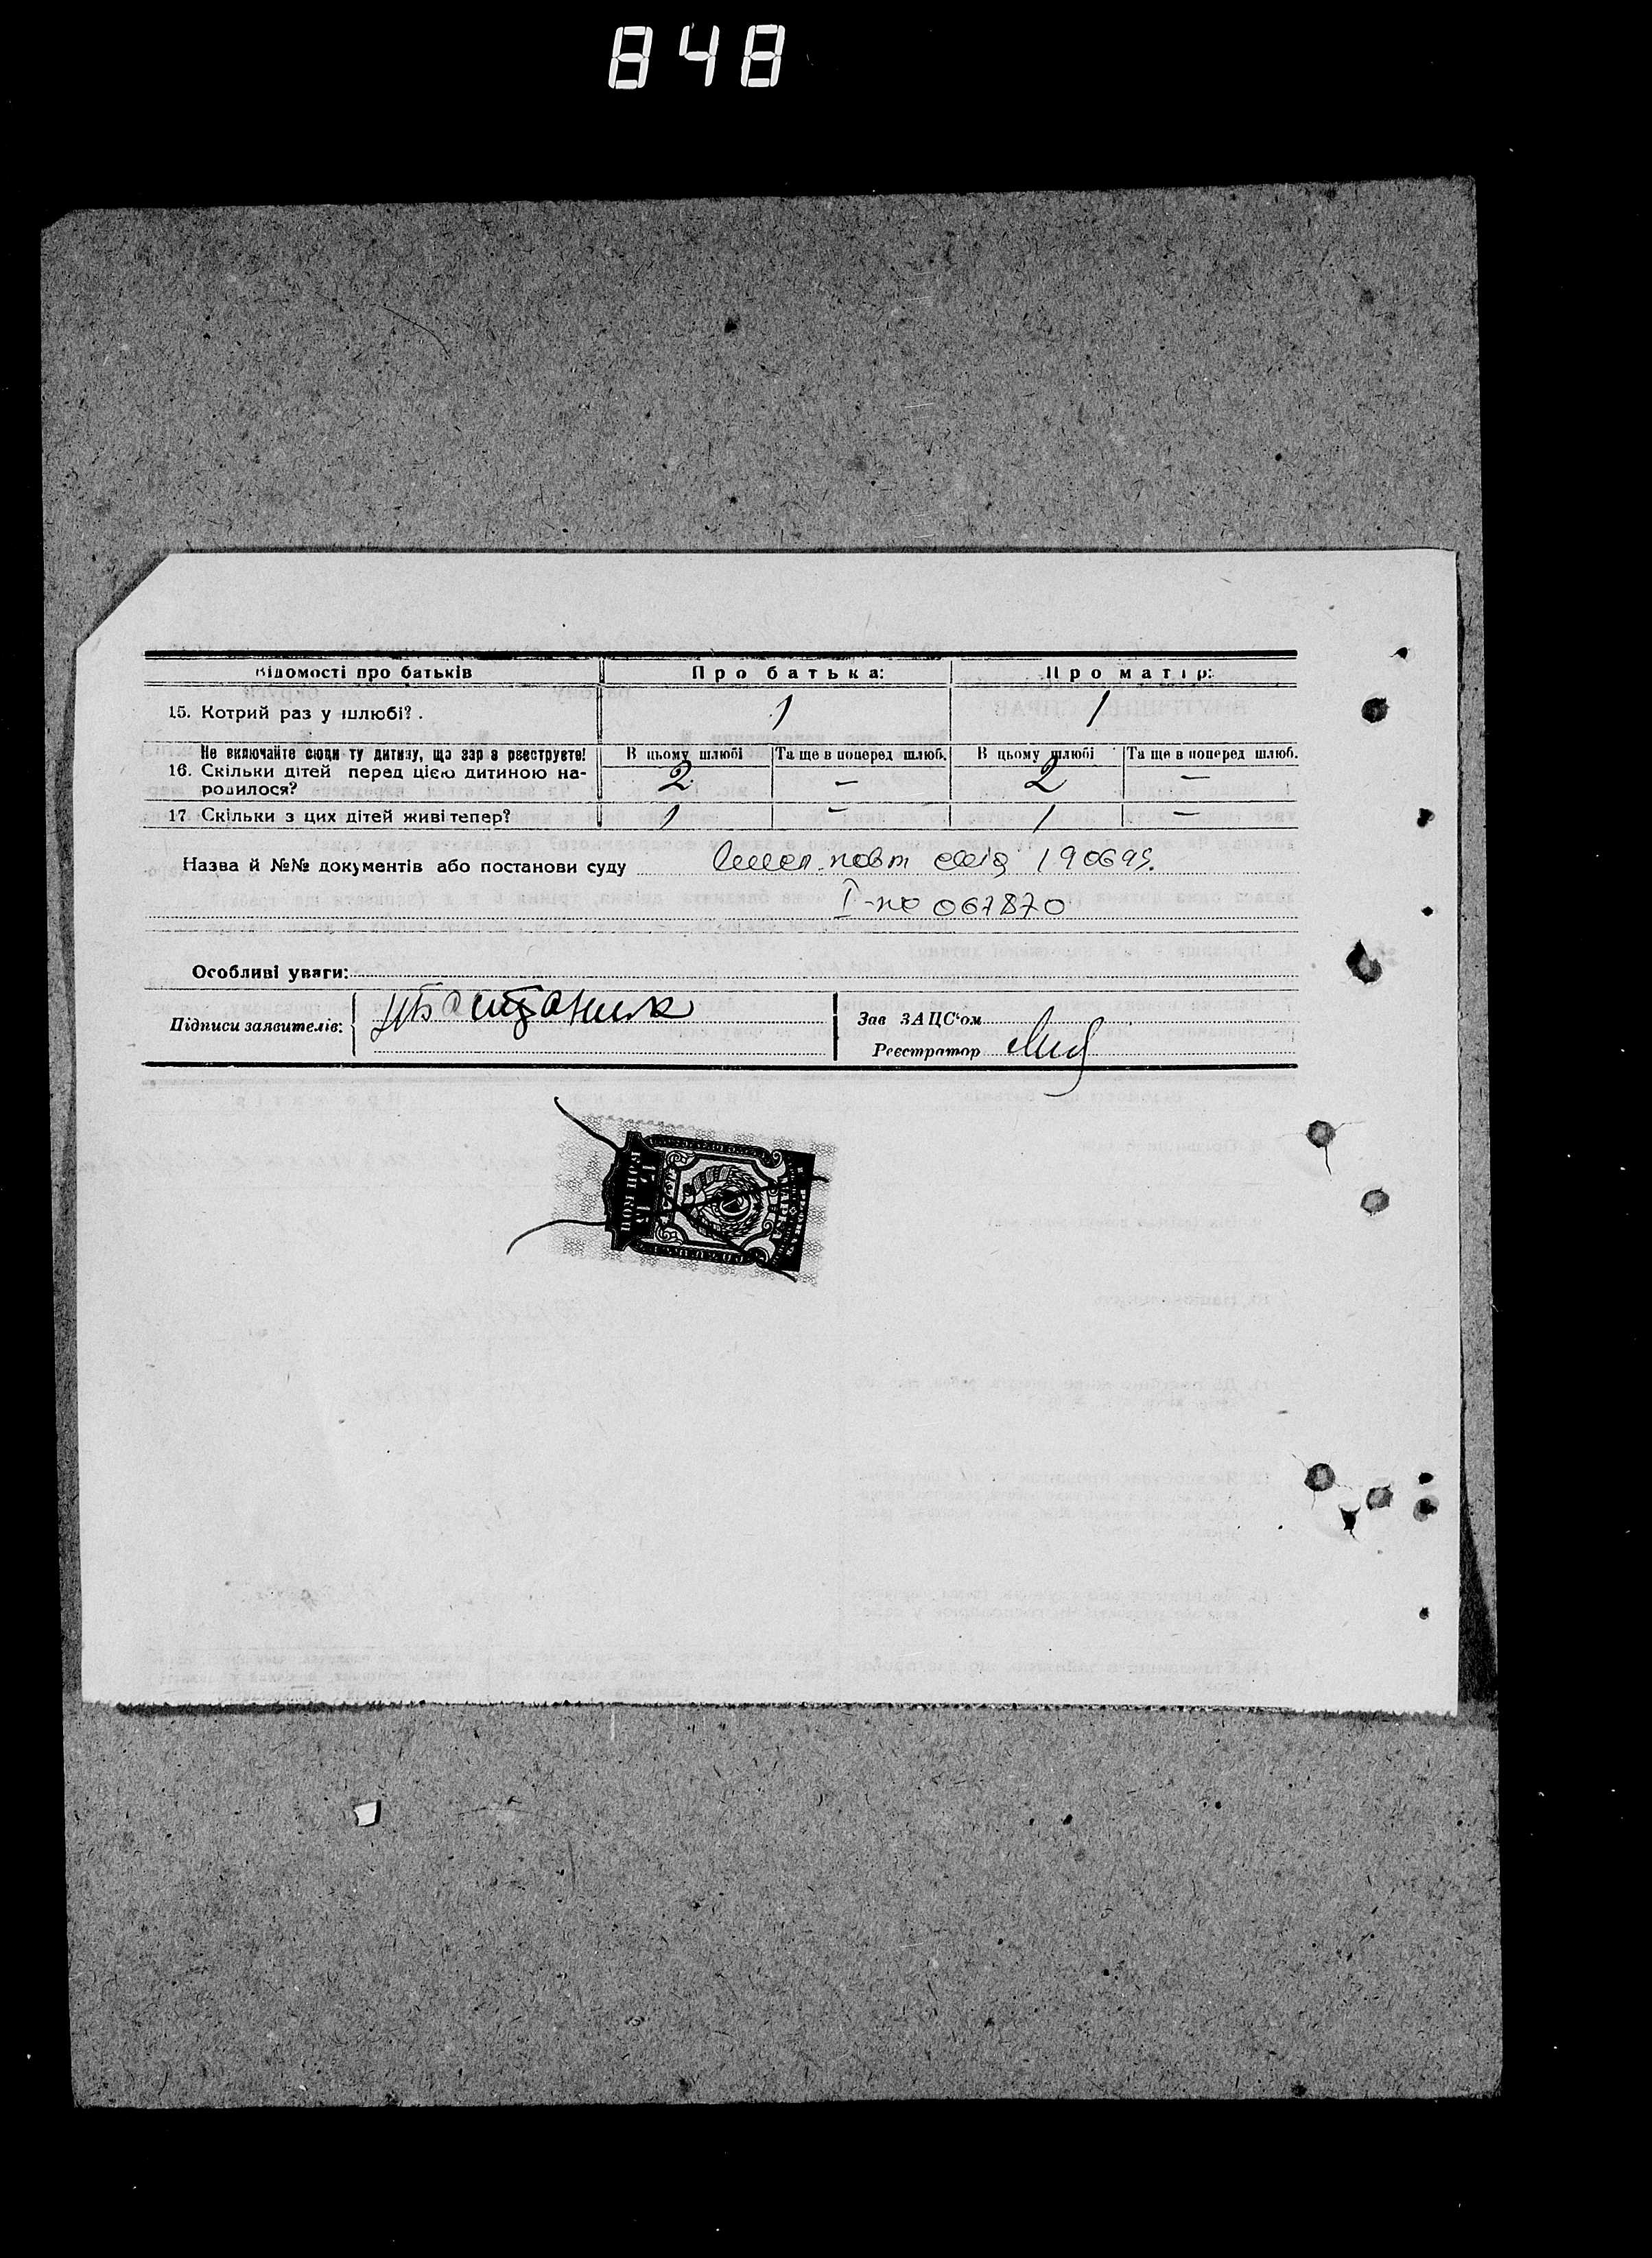 848
Відомості про батьків Про батька: Про матір:
15. Котрий раз у шлюбі? . 1 1
Не включайте сюди ту дитину, що зараз реєструєте! В цьому шлюбі Та ще в поперед шлюб. В цьому шлюбі Та ще в поперед шлюб.
16. Скільки дітей перед цією дитиною на- 2 — 2 —
родилося?
17 Скільки з цих дітей живі тепер? 1 — 1 —
Назва й №№ документів або постанови суду 190695.
067870
Особливі уваги:
Підписи заявителів: Зав ЗАЦС'ом
Реєстратор
15 15